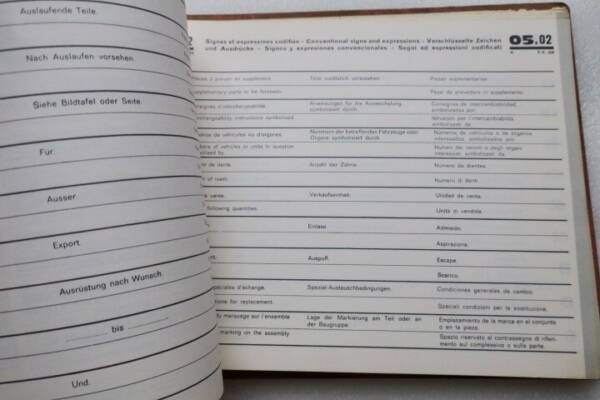 Auslaufende Teile.
Nach Auslaufen vorsehen.
Siehe Bildtafel oder Seite.
Für.
Ausser.
Export.
Ausrüstung nach Wunsch.
bis
Und.
Signes et expressions codifiés - Conventional signs and expressions - Verschlüsselte Zeichen
und Ausdrücke - Signos y expresiones convencionales - Segni ed espressioni codificati
05.02
Teile zusätzlich vorsehen. Piezas suplementarias
Pezzi da prevedere in supplemento.
Anweisungen für die Auswechselung Consignas de intercambiabilidad,
symbolisiert durch. simbolizadas por.
Istruzioni per l'intercambiabilità
simbolizzati da.
Nummern der betreffenden Fahrzeuge oder Números de vehículos o de órganos
Organe symbolisiert durch. interesados, simbolizados por.
Numeri dei veicoli o degli organi
interessati, simbolizzati da.
de dents. Anzahl der Zähne. Número de dientes.
of teeth. Numero di denti.
Verkaufseinheit. Unidad de venta.
following quantities. Unità di vendita.
Einlass Admisión.
Aspirazione.
Auspuff. Escape
Scarico.
spéciales d'échange. Spezial-Austauschbedingungen. Condiciones generales de cambio.
for replacement. Speciali condizioni per la sostituzione.
marquage sur l'ensemble Lage der Markierung am Teil oder an Emplazamiento de la marca en el conjunto
der Baugruppe. o en la pieza.
marking on the assembly. Spazio riservato al contrassegno di riferi-
mento sul complessivo o sulla parte.